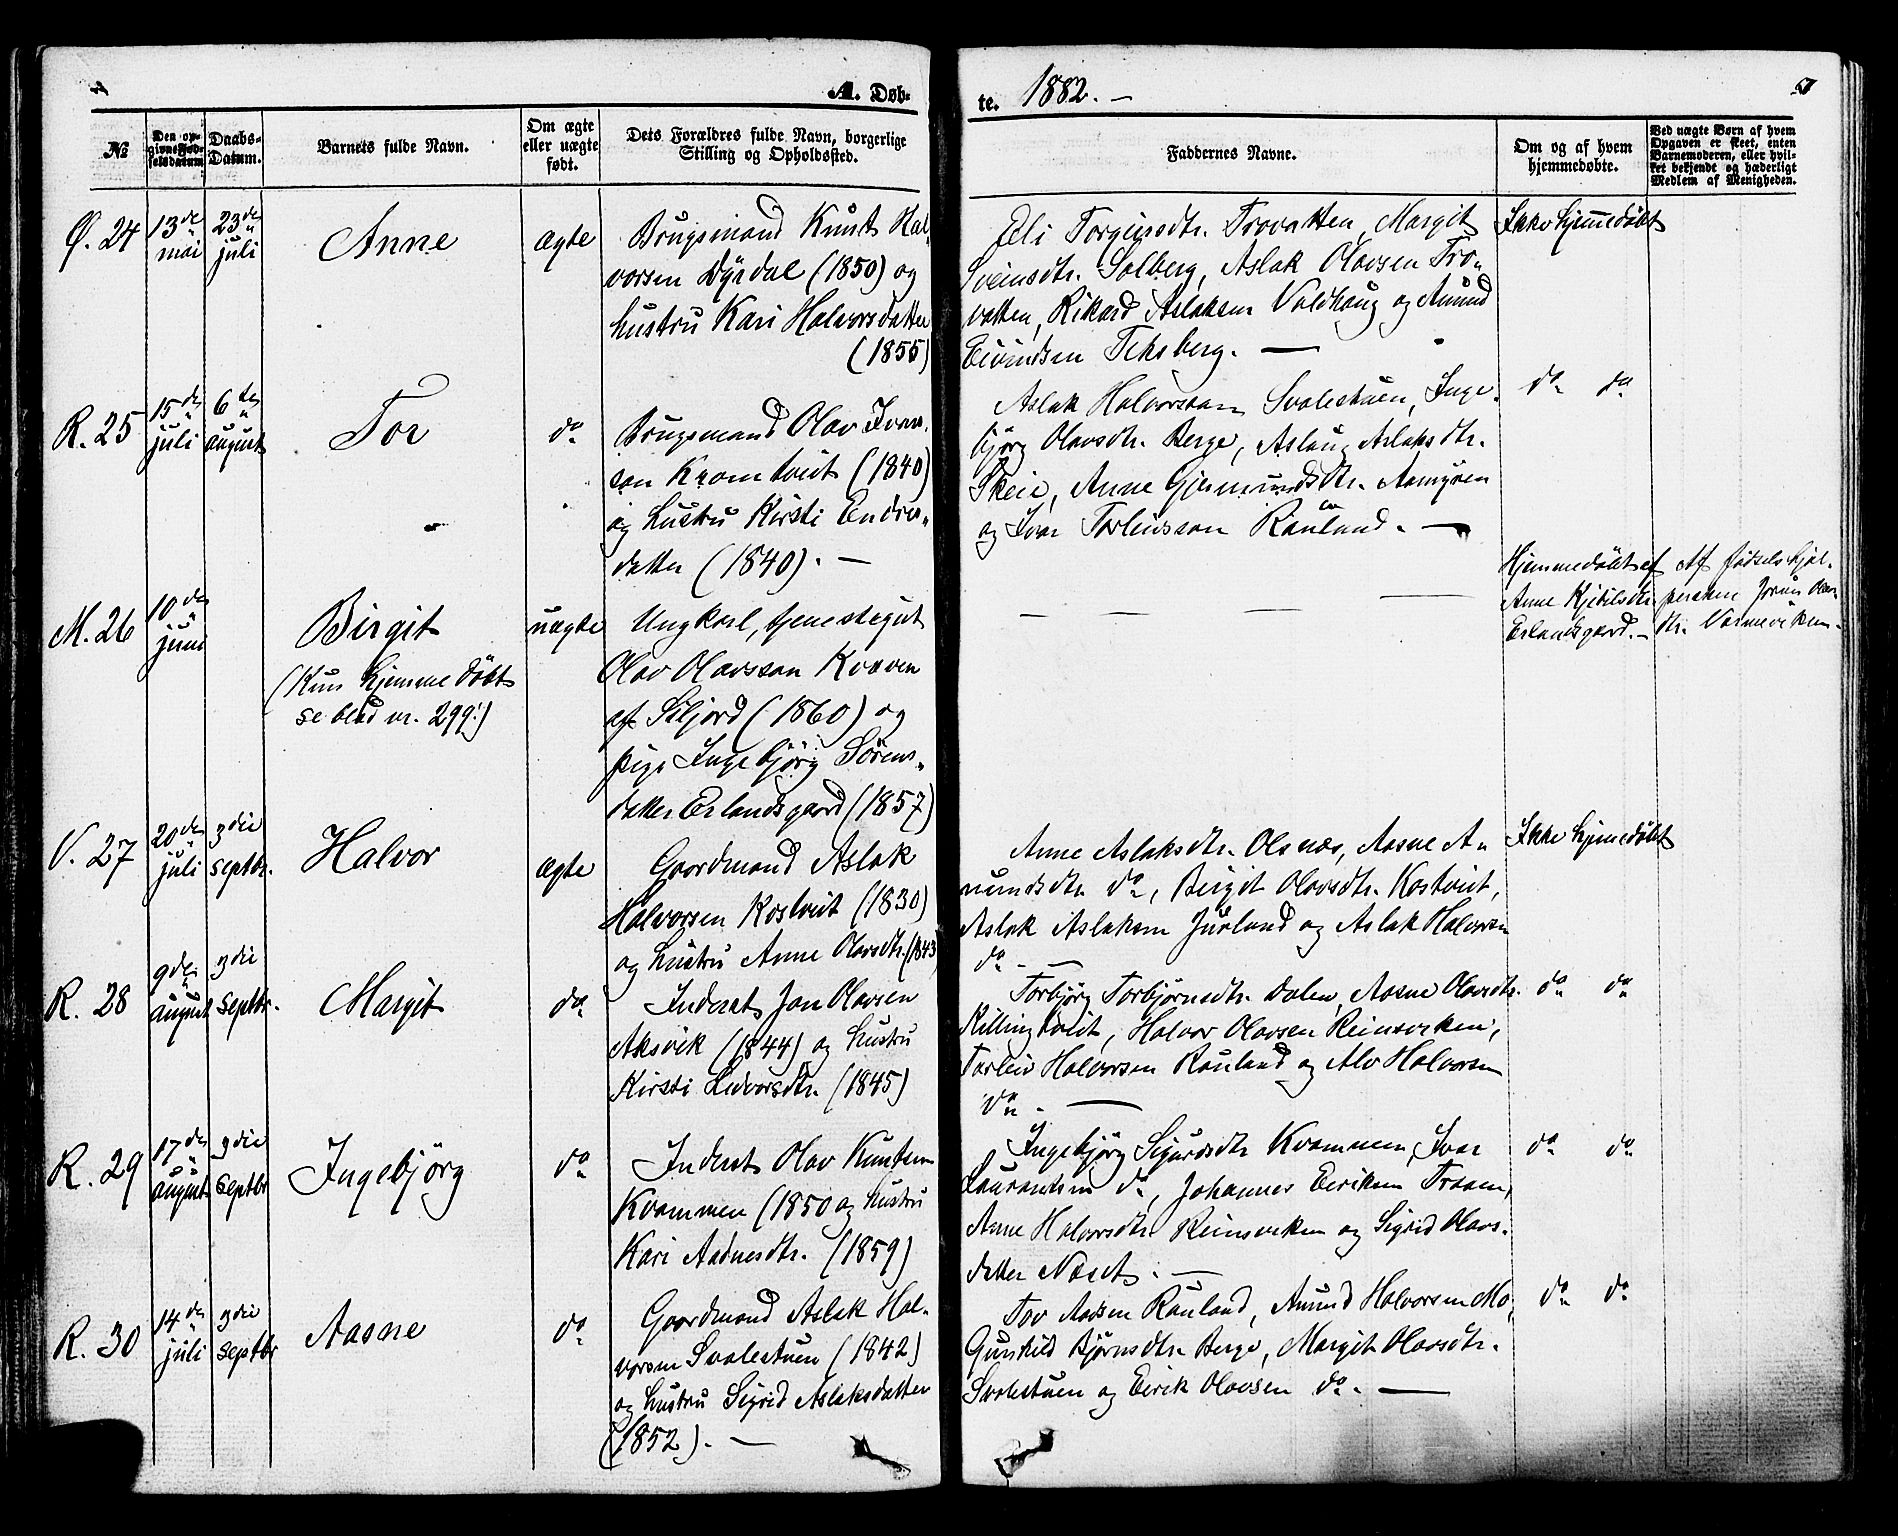 A. Døb-
te. 1882. —
№
Den op-
givne Fød-
selsdatum.
Daabs-
Datum.
Barnets fulde Navn.
Om ægte
eller uægte
født.
Dets Forældres fulde Navn, borgerlige
Stilling og Opholdssted.
Faddernes Navne.
Om og af hvem
hjemmedøbte.
Ved uægte Børn af hvem
Opgaven er skeet, enten
Barnemoderen, eller hvil-
ket bekjendt og hæderligt
Medlem af Menigheden.
Ø. 24
13de
mai
23de
juli
Anne
ægte
Brugsmand Knut Hal-
vorsen Dyrdal (1850) og
hustru Kari Halvorsdatter
(1855)
Eli Torgeirsdtr. Trovatten, Margit
Sveinsdtr. Solberg, Aslak Olavsen Tro-
vatten, Rikard Aslaksen Valdhaug og Amund
Eivindsen Teksberg. —
Ikke hjemmedøbt
R. 25
15de
juli
6te
august
Tor
do
Brugsmand Olav Ivars-
son Kromtveit (1840)
og hustru Kirsti Endres-
datter (1840). —
Aslak Halvorsson Svalestuen, Inge-
björg Olavsdtr. Berge, Aslaug Aslaksdtr.
Skeie, Anne Gjermundsdtr.
og Ivar Torleivsson Rauland. —
do do
M. 26
10de
juni
Birgit
(Kun hjemmedöbt
se blad nr. 299!)
uægte
Ungkarl, tjenestegut
Olav Olavsson Kvaven
af Siljord (1860) og
pige Ingebjörg Sörens-
datter Erlandsgaard (1857)
— — — — —
Hjemmedöbt af
Anne Kjetilsdtr.
Erlandsgaard. —
Af födselshjæl-
persken Jorun Olavs-
dtr. Varmeviken.
V. 27
20de
juli
3die
septbr.
Halvor
ægte
Gaardmand Aslak
Halvorsen Kostveit (1830)
og hustru Anne Olavsdtr. (1843)
Anne Aslaksdtr. Olsnæs, Aasne A-
mundsdtr. do, Birgit Olavsdtr. Kostveit,
Aslak Aslaksen Juvland og Aslak Halvorsen
do —
Ikke hjemmedøbt
R. 28
9de
august
3die
septbr.
Margit
do
Inderst Jon Olavsen
Aksvik (1844) og hustru
Kirsti Ledvorsdtr. (1845)
Torbjörg Torbjörnsdtr. Dalen, Aasne Olavsdtr.
Killingtveit, Halvor Olavsen Reinsviken,
Torleiv Halvorsen Rauland og Alv Halvorsen
do. —
do do
R. 29
17de
august
3die
septbr
Ingebjörg
do
Inderst Olav Knutsen
Kvammen (1850 og hustru
Kari Aadnesdtr. (1859)
Ingebjörg Sigurdsdtr Kvammen, Ivar
Laurantsen do, Johannes Eeriksen Traaen,
Anne Halvorsdtr. Reinsviken og Sigrid Olavs-
datter Næset. —
do do
R. 30
14de
juli
3die
septbr
Aasne
do
Gaardmand Aslak Hal-
vorsen Svalestuen (1842)
og hustru Sigrid Aslaksdatter
(1852). —
Tov Aadsen Rauland, Amund Halvorsen Mo,
Gunhild Björnsdtr. Berge, Margit Olavsdtr.
Svalestuen og Eirik Olavsen do. —
do do